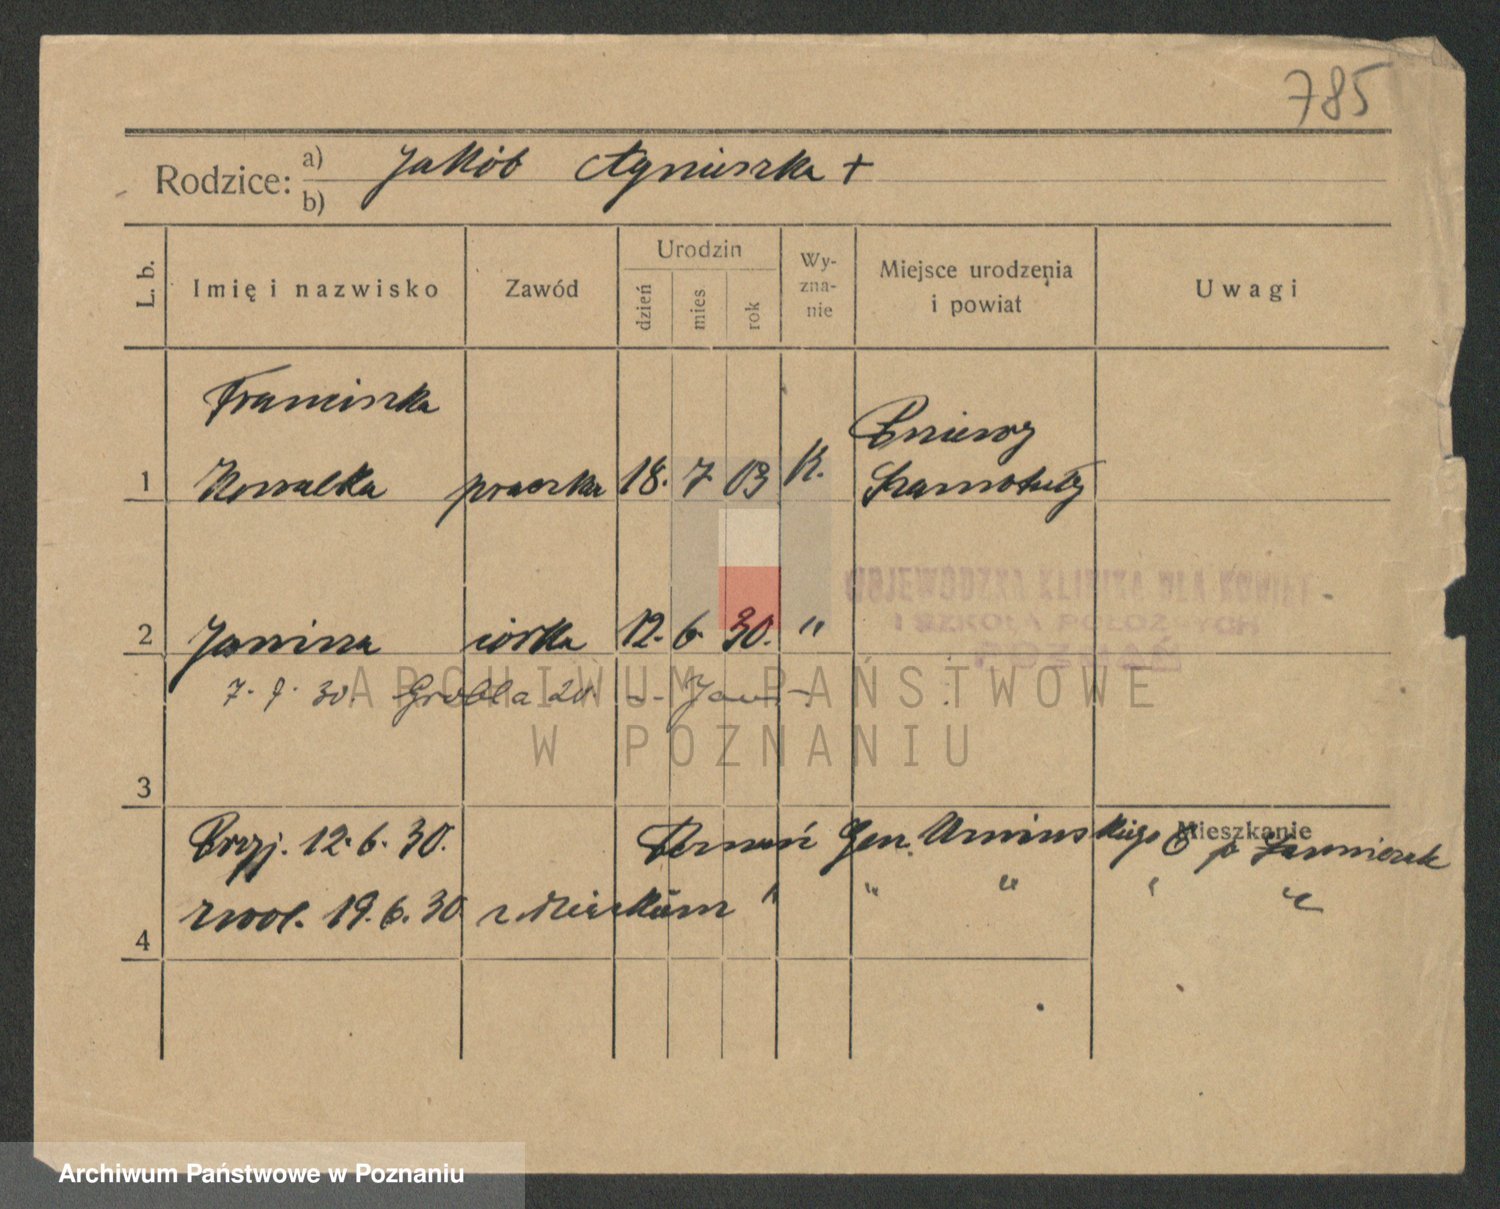 785
Rodzice: a) Jakób Agnieszka +
b)
L. b. Imię i nazwisko Zawód Urodzin dzień mies rok Wy-zna-nie Miejsce urodzenia i powiat Uwagi
Franciszka
Pniewy
1 Kowalka praczka 18. 7 03 K. Szamotuły
WOJEWÓDZKA KLINIKA DLA KOBIET
I SZKOŁA POŁOŻNYCH
POZNAŃ
2 Janina córka 12. 6. 30. "
7. 9. 30. Grobla 20
ARCHIWUM PAŃSTWOWE
W POZNANIU
3
Mieszkanie
Przyj. 12. 6. 30. Poznań Gen. Umińskiego 6 p
zwol. 19. 6. 30 z dzieckiem " " " " "
4
Archiwum Państwowe w Poznaniu